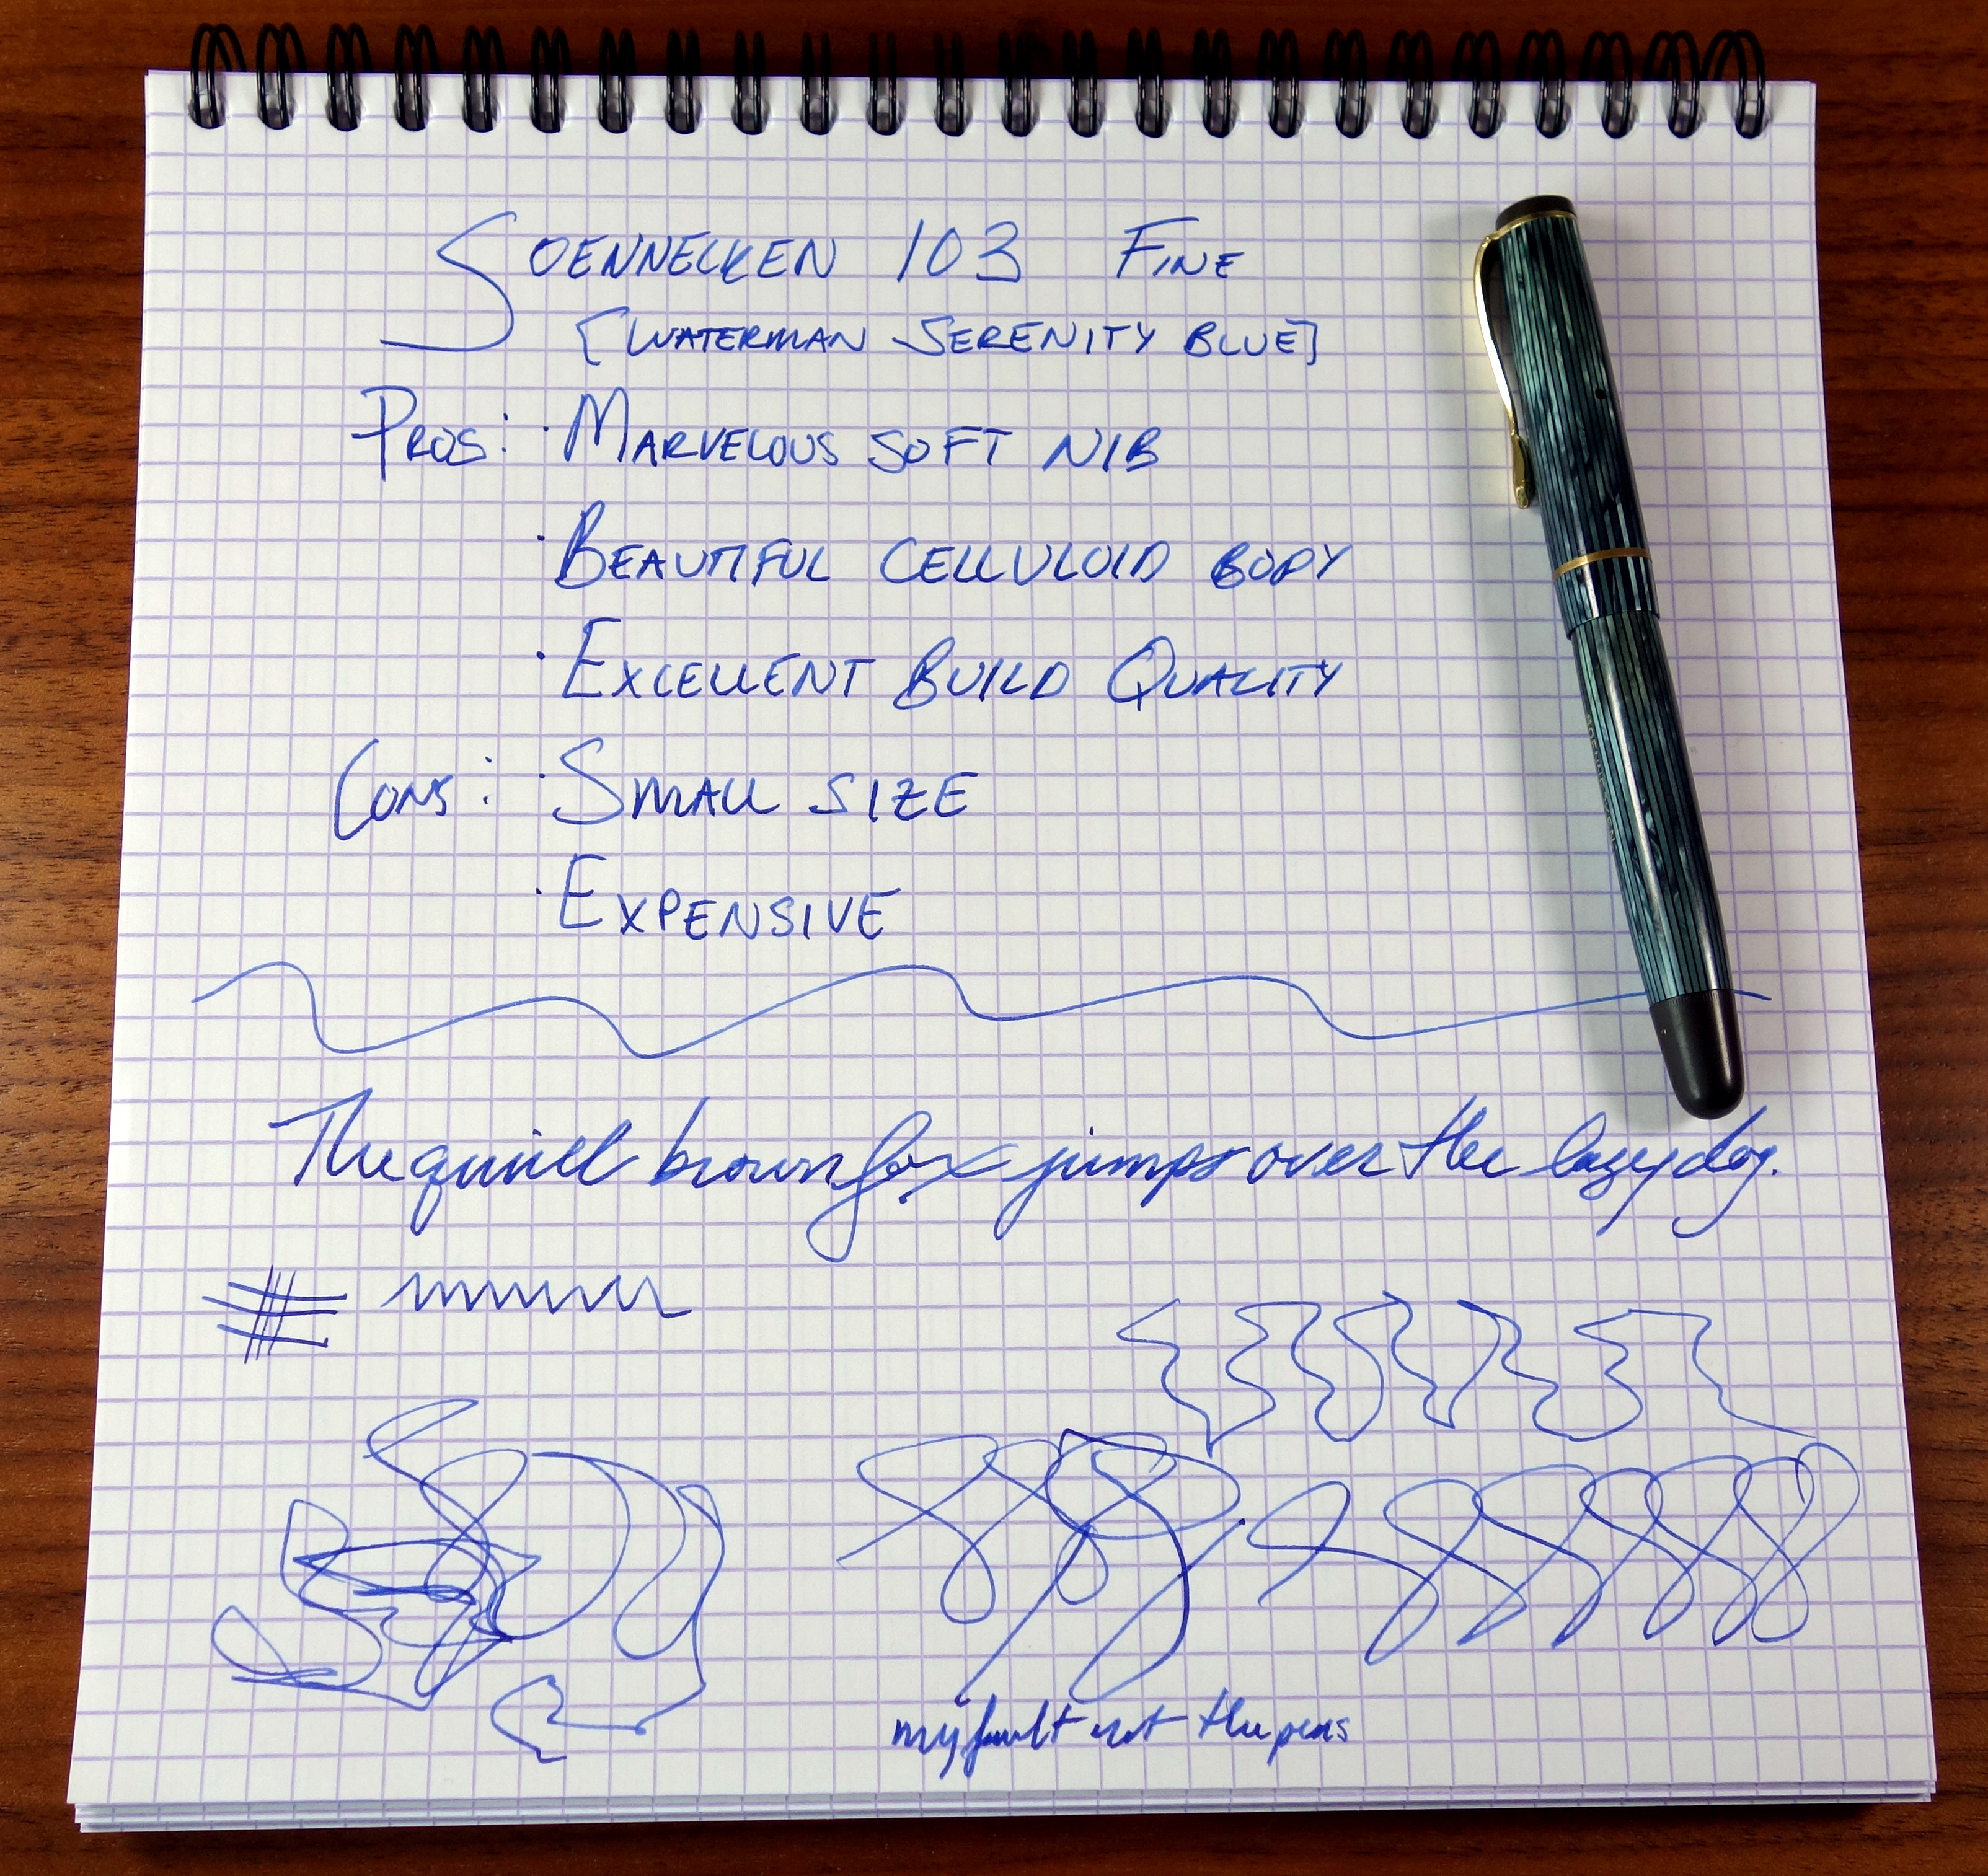 SOENNECKEN 103 FINE
[WATERMAN SERENITY BLUE]
PROS: · MARVELOUS SOFT NIB
· BEAUTIFUL CELLULOID BODY
· EXCELLENT BUILD QUALITY
CONS: · SMALL SIZE
· EXPENSIVE
The quick brown fox jumps over the lazy dog.
my fault not the pens